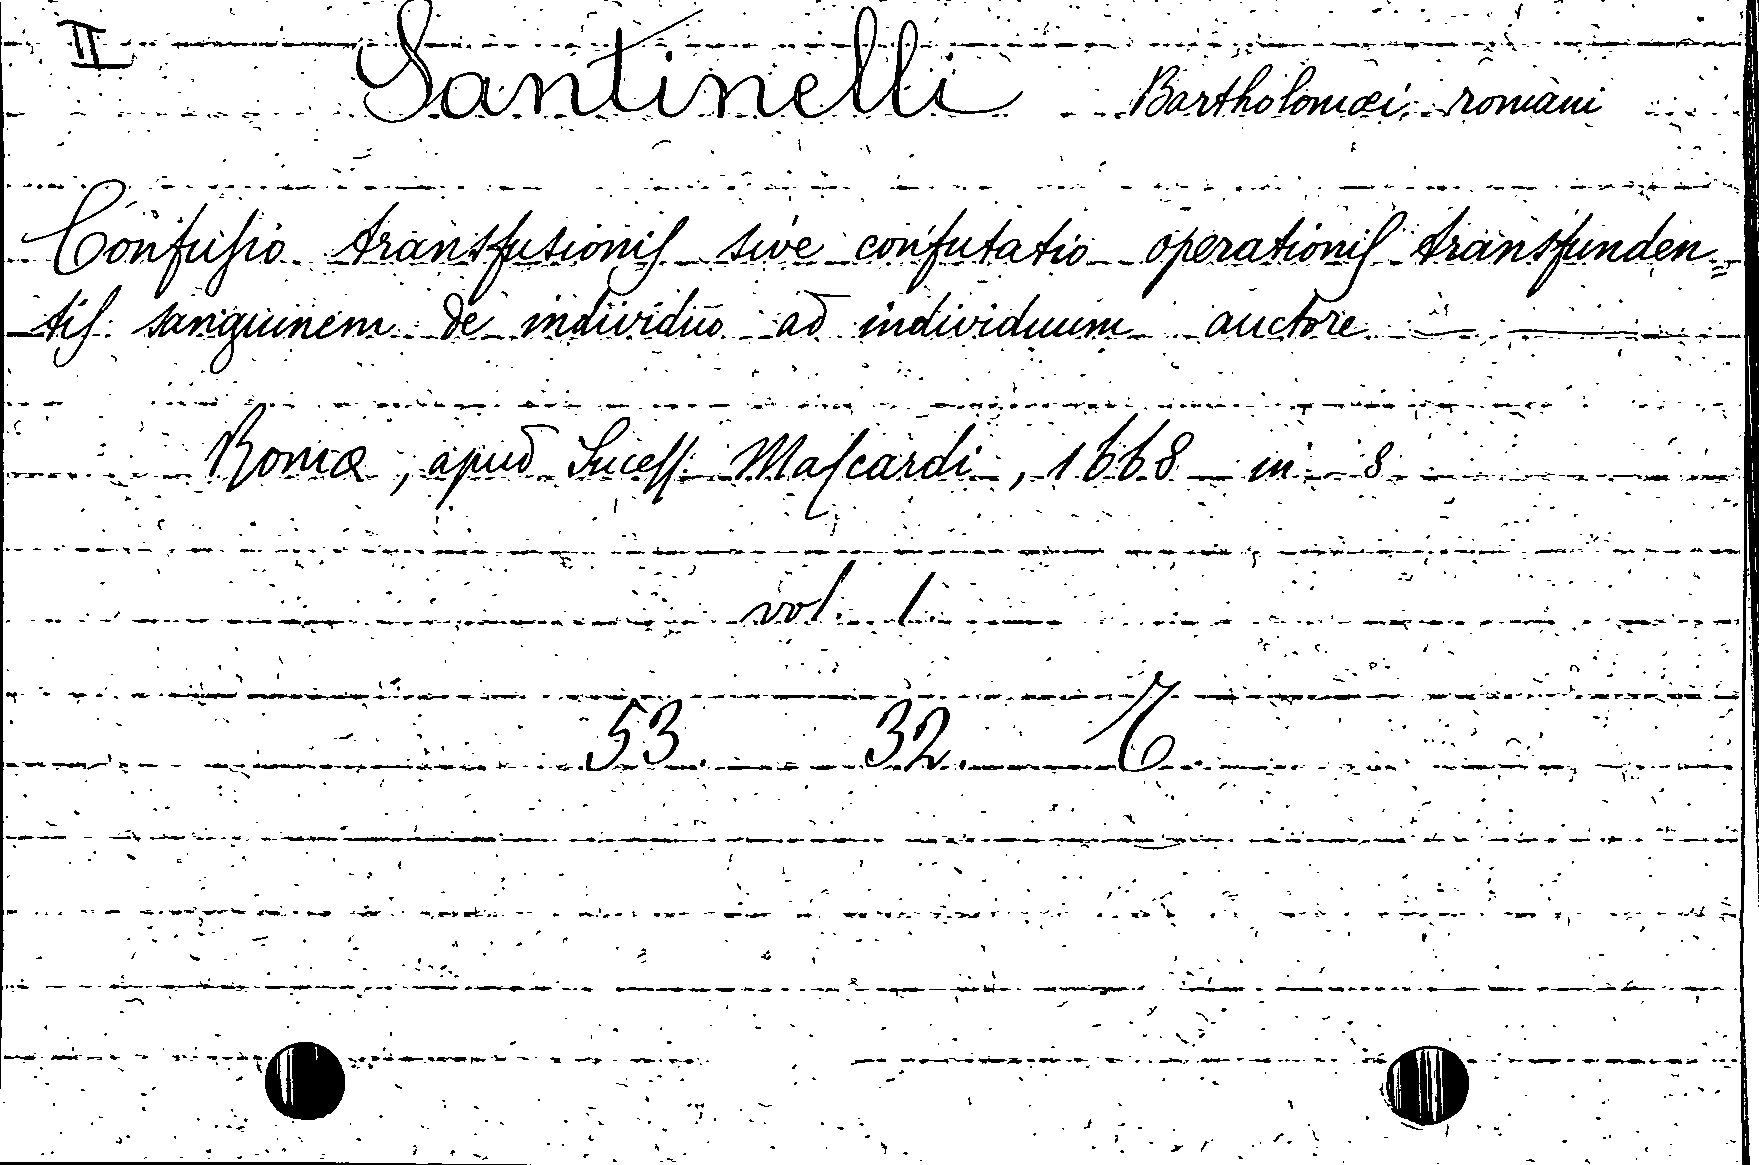 II Santinelli Bartholomæi romani
Confusio transfusionis sive confutatio operationis transfunden=
tis sanguinem de individuo ad individuum auctore —
Romæ, apud Success. Mascardi, 1668 in 8
vol. 1.
53. 32. C.